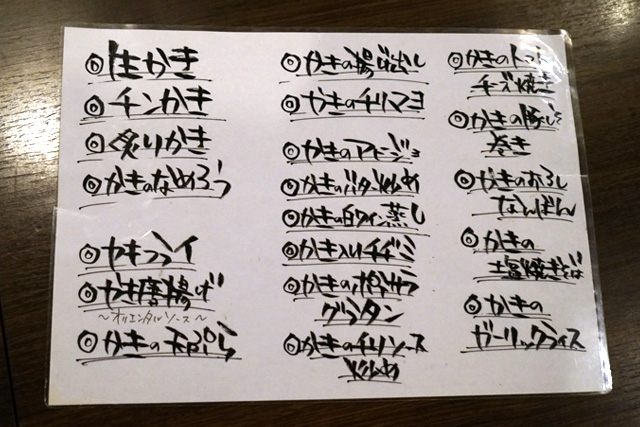 ◎生かき
◎チンかき
◎炙りかき
◎かきのなめろう
◎カキフライ
◎かき唐揚げ
〜オリエンタルソース〜
◎かきの天ぷら
◎かきの揚げ出し
◎かきのチリマヨ
◎かきのアヒージョ
◎かきのバター炒め
◎かきの白ワイン蒸し
◎かき入りチヂミ
◎かきのポテサラ
グラタン
◎かきのチリソース
炒め
◎かきのトマト
チーズ焼き
◎かきの豚バラ
巻き
◎かきのおろし
なんばん
◎かきの
塩焼きそば
◎かきの
ガーリックライス